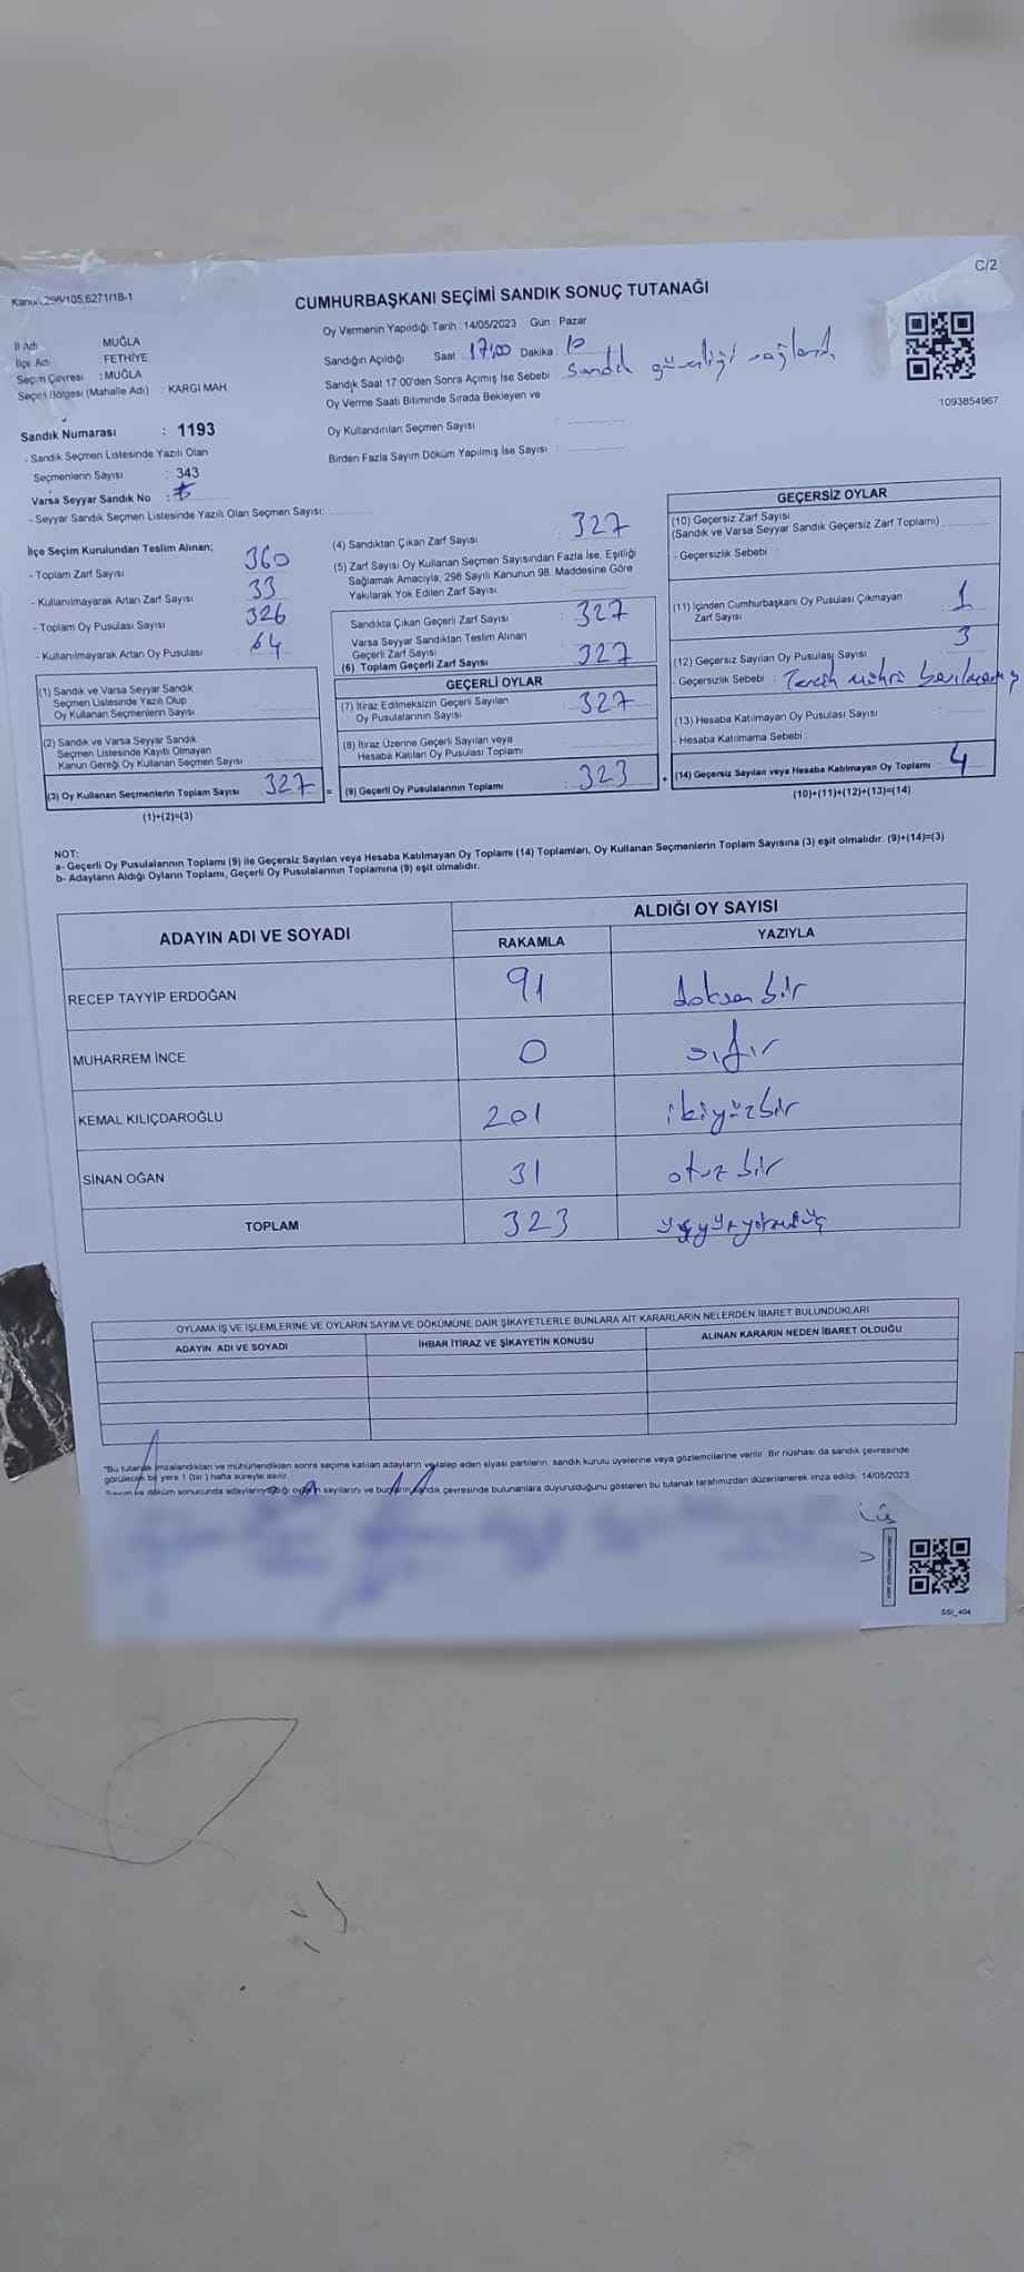 C/2
CUMHURBAŞKANI SEÇİMİ SANDIK SONUÇ TUTANAĞI
İl Adı MUĞLA
İlçe Adı FETHİYE
Seçim Çevresi : MUĞLA
Seçim Bölgesi (Mahalle Adı) : KARGI MAH.
Sandık Numarası : 1193
- Sandık Seçmen Listesinde Yazılı Olan
Seçmenlerin Sayısı : 343
Varsa Seyyar Sandık No :
- Seyyar Sandık Seçmen Listesinde Yazılı Olan Seçmen Sayısı:
Oy Vermenin Yapıldığı Tarih : 14/05/2023 Gün : Pazar
Sandığın Açıldığı Saat : 17:00 Dakika : 10
Sandık Saat 17:00'den Sonra Açılmış İse Sebebi : Sandık güvenliği sağlandı
Oy Verme Saati Bitiminde Sırada Bekleyen ve
Oy Kullandırılan Seçmen Sayısı :
Birden Fazla Sayım Döküm Yapılmış İse Sayısı :
1093854967
İlçe Seçim Kurulundan Teslim Alınan;
- Toplam Zarf Sayısı 360
- Kullanılmayarak Artan Zarf Sayısı 33
- Toplam Oy Pusulası Sayısı 326
- Kullanılmayarak Artan Oy Pusulası 64
(1) Sandık ve Varsa Seyyar Sandık
Seçmen Listesinde Yazılı Olup
Oy Kullanan Seçmenlerin Sayısı
(2) Sandık ve Varsa Seyyar Sandık
Seçmen Listesinde Kayıtlı Olmayan
Kanun Gereği Oy Kullanan Seçmen Sayısı
(3) Oy Kullanan Seçmenlerin Toplam Sayısı 327 =
(1)+(2)=(3)
(4) Sandıktan Çıkan Zarf Sayısı : 327
(5) Zarf Sayısı Oy Kullanan Seçmen Sayısından Fazla İse, Eşitliği
Sağlamak Amacıyla, 298 Sayılı Kanunun 98. Maddesine Göre
Yakılarak Yok Edilen Zarf Sayısı
Sandıkta Çıkan Geçerli Zarf Sayısı : 327
Varsa Seyyar Sandıktan Teslim Alınan
Geçerli Zarf Sayısı
(6) Toplam Geçerli Zarf Sayısı : 327
GEÇERLİ OYLAR
(7) İtiraz Edilmeksizin Geçerli Sayılan
Oy Pusulalarının Sayısı : 327
(8) İtiraz Üzerine Geçerli Sayılan veya
Hesaba Katılan Oy Pusulası Toplamı
(9) Geçerli Oy Pusulalarının Toplamı : 323 +
GEÇERSİZ OYLAR
(10) Geçersiz Zarf Sayısı
(Sandık ve Varsa Seyyar Sandık Geçersiz Zarf Toplamı)
- Geçersizlik Sebebi :
(11) İçinden Cumhurbaşkanı Oy Pusulası Çıkmayan
Zarf Sayısı 1
(12) Geçersiz Sayılan Oy Pusulası Sayısı 3
- Geçersizlik Sebebi : Tercih mührü
(13) Hesaba Katılmayan Oy Pusulası Sayısı
- Hesaba Katılmama Sebebi :
(14) Geçersiz Sayılan veya Hesaba Katılmayan Oy Toplamı 4
(10)+(11)+(12)+(13)=(14)
NOT:
a- Geçerli Oy Pusulalarının Toplamı (9) ile Geçersiz Sayılan veya Hesaba Katılmayan Oy Toplamı (14) Toplamları, Oy Kullanan Seçmenlerin Toplam Sayısına (3) eşit olmalıdır. (9)+(14)=(3)
b- Adayların Aldığı Oyların Toplamı, Geçerli Oy Pusulalarının Toplamına (9) eşit olmalıdır.
ADAYIN ADI VE SOYADI ALDIĞI OY SAYISI
RAKAMLA YAZIYLA
RECEP TAYYİP ERDOĞAN 91 doksan bir
MUHARREM İNCE 0 sıfır
KEMAL KILIÇDAROĞLU 201 ikiyüzbir
SİNAN OĞAN 31 otuz bir
TOPLAM 323 üçyüzyirmiüç
OYLAMA İŞ VE İŞLEMLERİNE VE OYLARIN SAYIM VE DÖKÜMÜNE DAİR ŞİKAYETLERLE BUNLARA AİT KARARLARIN NELERDEN İBARET BULUNDUKLARI
ADAYIN ADI VE SOYADI İHBAR İTİRAZ VE ŞİKAYETİN KONUSU ALINAN KARARIN NEDEN İBARET OLDUĞU
"Bu tutanak imzalandıktan ve mühürlendikten sonra seçime katılan adayların ve talep eden siyasi partilerin, sandık kurulu üyelerine veya gözlemcilerine verilir. Bir nüshası da sandık çevresinde
görülecek bir yere 1 (bir) hafta süreyle asılır.
Sayım ve döküm sonucunda adayların aldığı oyların sayılarını ve bunların sandık çevresinde bulunanlara duyurulduğunu gösteren bu tutanak tarafımızdan düzenlenerek imza edildi. 14/05/2023